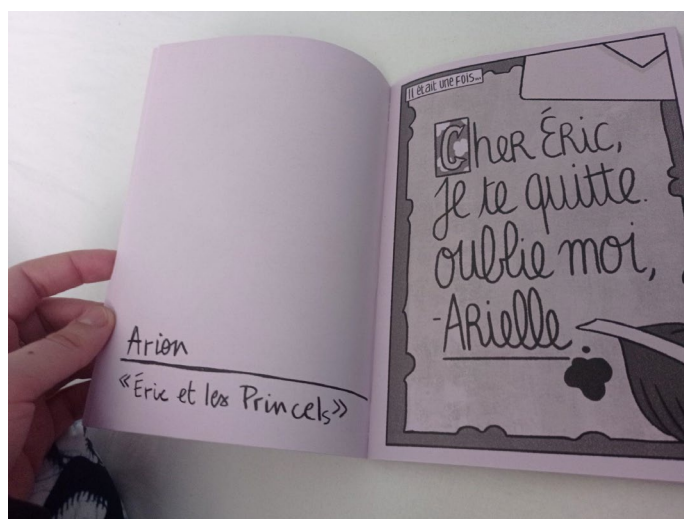 Arion
«Éric et les Princels»
Il était une fois...
Cher Éric,
je te quitte.
oublie moi,
-Arielle.